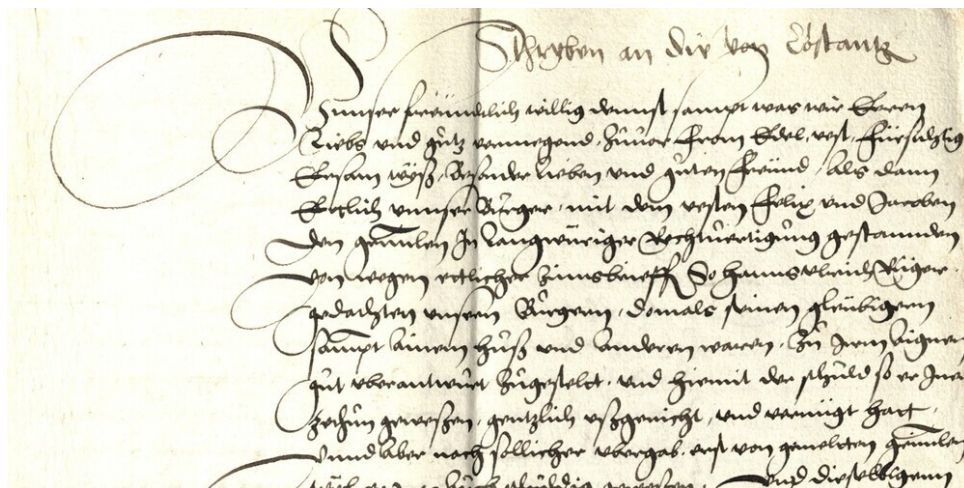 Schryben an die von Costantz
Unnser freündtlich willig dennst sampt was wir Eeren
Liebs und gůtz vermegend zůuor From Edel vest fürsichtig
Ersam wyß besonder lieben und gůten freünd als dann
Ettlich unnser Burger mit dem vesten Felix und Jacoben
den In langwüriger Rechtuertigung gestannden
von wegen ettlicher zinnsbrieff So Hanns Ulrich Rüger
gedachten unsern Burgern domals seinen gleübigern
sampt ainem huß und anderen waren zů Irem aignen
gůt uberantwürt zůgestelt und hiemit der schuld so er Inen
zethun geweßen gentzlich ußgericht und vernügt hatt
Unnd aber nach sollicher ubergab erst von
schuldig geweßen Und dieselbigenn